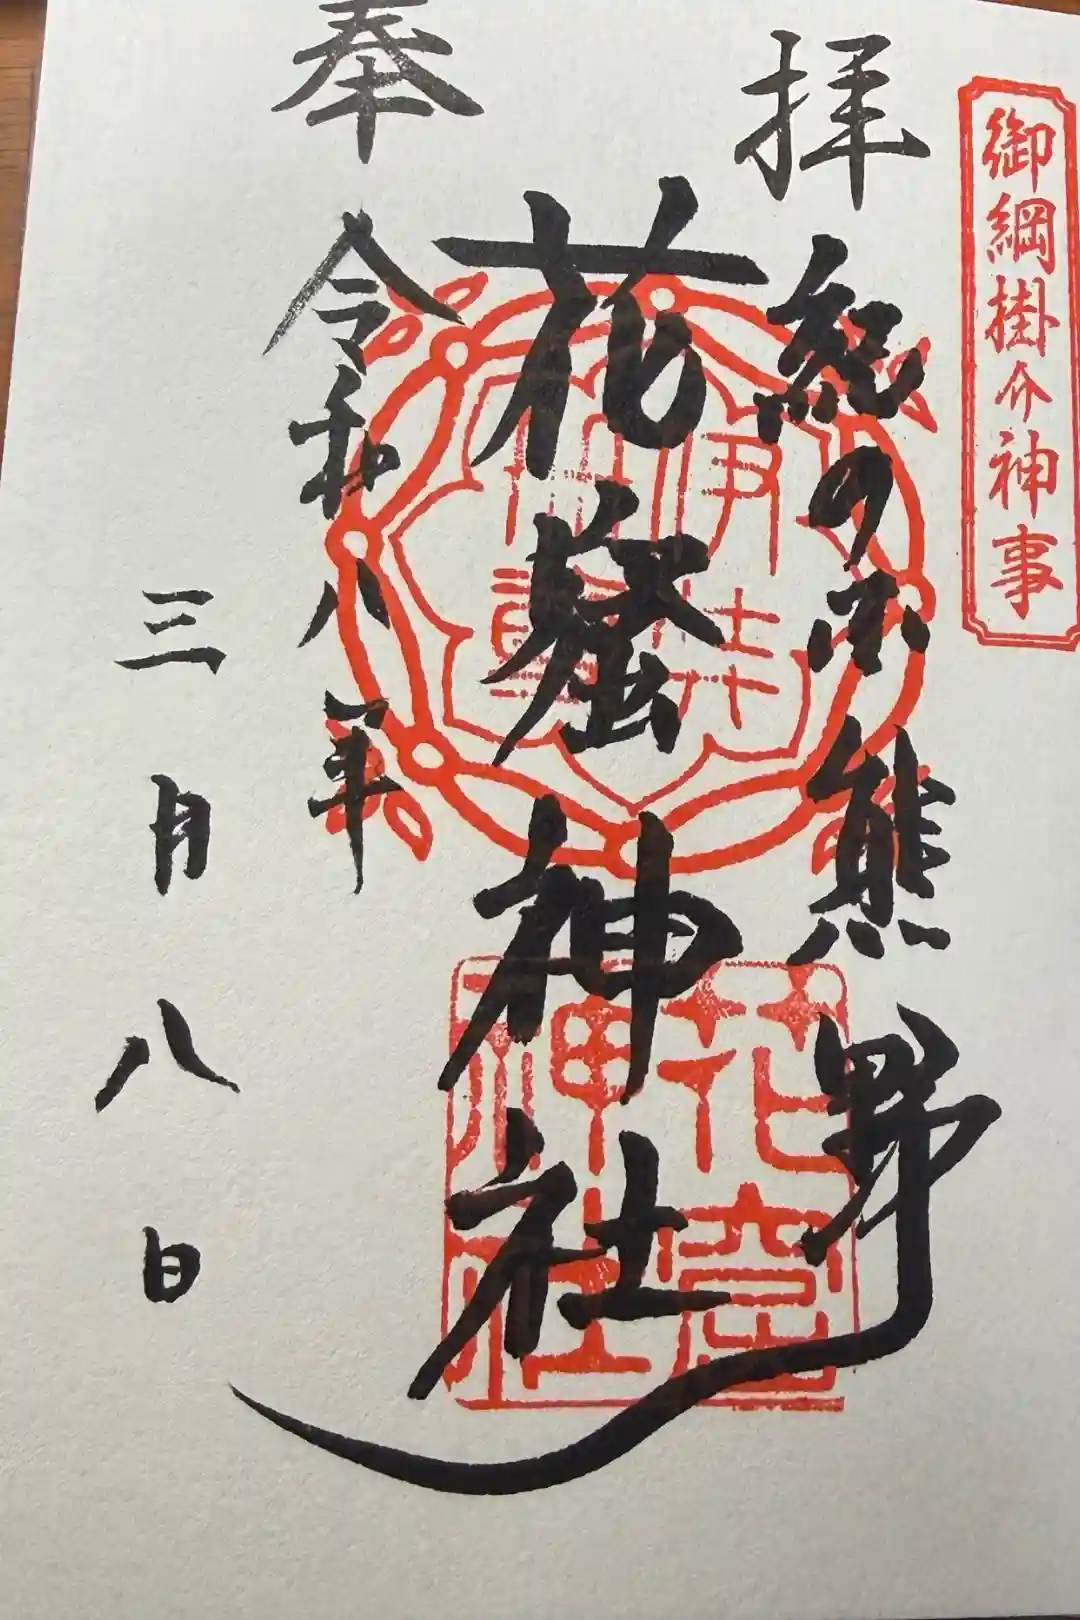 御綱掛介神事
奉拝
紀の
熊野
花窟神社
令和八年
三月八日
花窟
神社